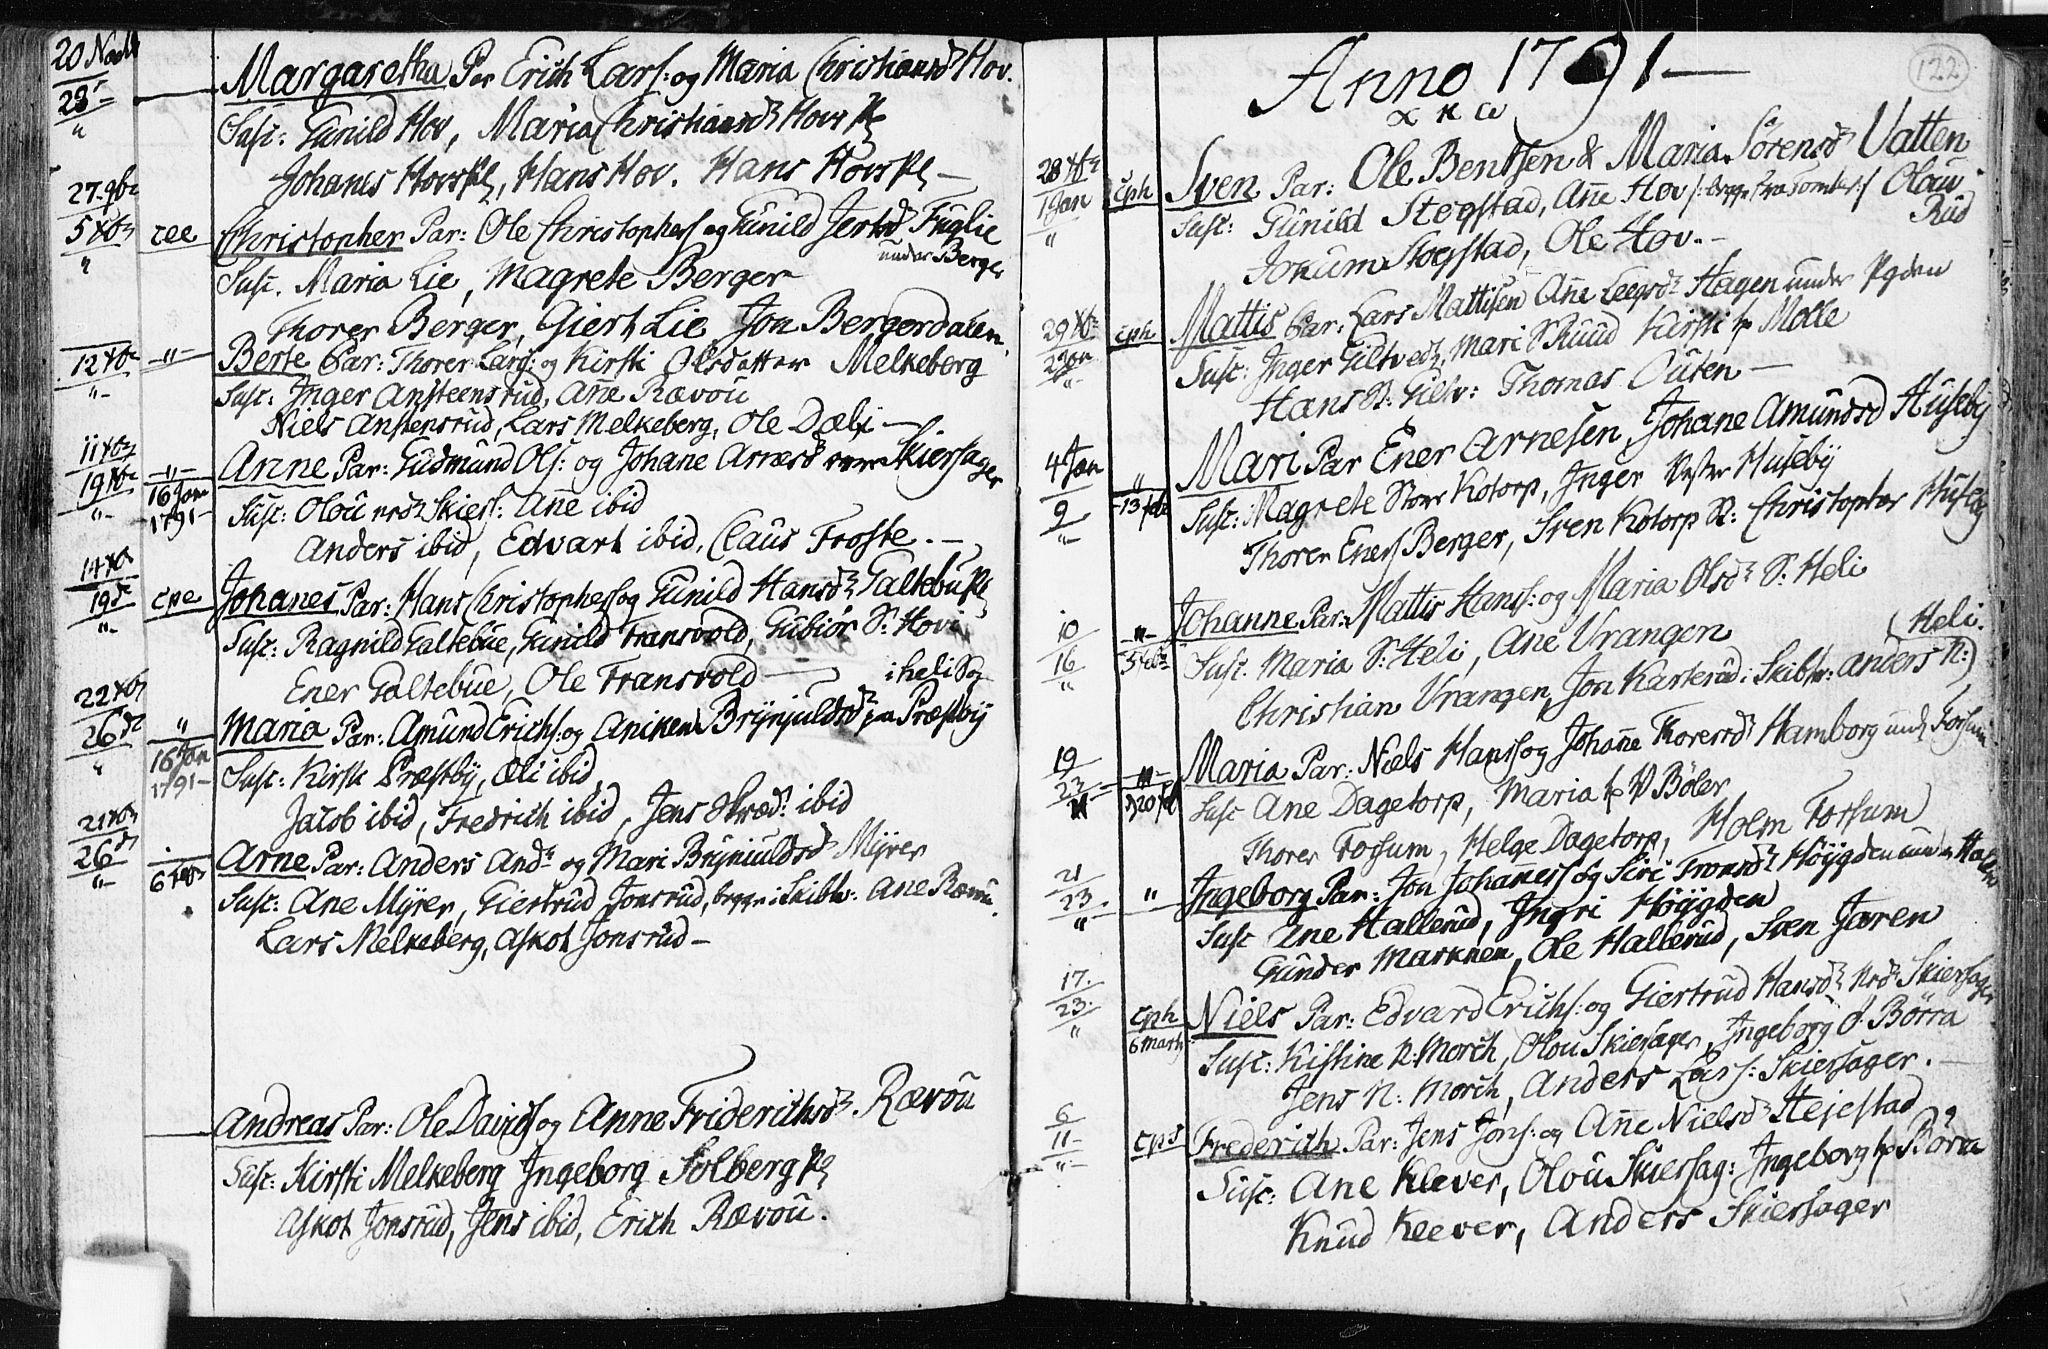 20 Nov
23
"
Margaretha Par Erich Lars: og Maria Christiansd Hov.
Susc: Gunild Hov, Maria Christiansd Hovs Pl
Johanes Hovs Pl, Hans Hov. Hans Hovs Pl —
27 9br
5 Xbr cee Christopher Par: Ole Christophers og Gunild Jertsd Fuglie
under Berger
" Susc. Maria Lie, Magrete Berger
Thorer Berger, Giert Lie Jon Bergerdalen.
12 Xbr —"— Berte Par: Thorer Lars: og Kirsti Olsdatter Melkeberg
"— Susc: Inger Ansteensrud, Anne Rævou
Niels Anstensrud, Lars Melkeberg, Ole Dæli —
11 Xbr
19 Xbr —"— Anne Par: Gudmund Ols: og Johane Arnesd Skiersager
"— 16 Jan 1791— Susc: Olou nrd Skiers: Ane ibid
Anders ibid, Edvart ibid, Claus Froste. —
14 Xbr
19 d cpe Johanes Par: Hans Christophers og Gunild Hansd Galtebu Pl
"— Susc: Ragnild Galtebue, Gunild Fransvold, Gubiør S: Hovi
Ener Galtebue, Ole Fransvold — i Heli Sog
22 Xbr
26 d " Maria Par: Amund Erichs: og Aniken Brynjulds Præstby
" 16 Jan 1791— Susc: Kirste Præstby, Eli ibid
Jacob ibid, Fredrich ibid, Jens Skræd: ibid
21 Xbr
26 d Arne Par: Anders And og Mari Brynjuldsd Myrer
"— 6 Susc: Ane Myrer, Giertrud Jonsrud, begge i Skibtv: Ane Rævou.
Lars Melkeberg, Askot Jonsrud —
Andreas Par: Ole Davids og Anne Friderichsd Rævou
Susc: Kirsti Melkeberg Ingeborg Solberg Pl
Askot Jonsrud, Jens ibid, Erich Rævou.
122
Anno 1791—
α κ ω
28 Xbr
1 Jan cph Sven Par: Ole Bentsen & Maria Sørensd Vatten
" Susc: Gunild Stegstad, Ane Hov /: begge fra Tomter :/ Olou Rud
Jokum Stegstad, Ole Hov. —
29 Xbr
2 Jan cph Mattis Par: Lars Mattisen Ane Leegsd Hagen under Ygden
"— Susc: Inger Giltved, Mari S Ruud Kirsti Molle
Hans S: Giltv: Thomas Outen —
4 Jan
9 " Mari Par Ener Arnesen Johane Amundsd Huseby
"— 13 feb Susc: Magrete Store Kotorp, Inger Vestre Huseby
Thorer Eners Berger, Sven Kotorp S: Christopher Huseby
10
16 —"— Johanne Par: Mattis Hans: og Maria Olsd S: Heli
" Susc. Maria S: Heli, Ane Vrangen (Heli.
Christian Vrangen, Jon Karterud i Skibtv: Anders N:)
19
23 —"— Maria Par: Niels Hans og Johane Thoresd Hamborg und Forsum
" 20 feb Susc Ane Dagetorp, Maria V Bøler
Thorer Forsum, Helge Dagetorp, Holm Forsum
21
23 " Ingeborg Par: Jon Johannes og Siri Høygden under
" Susc Ane Hallerud, Ingri Høygden
Gunder Marknen, Ole Hallerud, Sven Jaren
17.
23. cph Niels Par: Edvard Erichs: og Giertrud Hansd Nrd Skiersager
" 6 Marts Susc: Kistine N: Morch, Olou Skiersager, Ingeborg S. Børra
Jens N: Morch, Anders Lars: Skiersager. —
6
11— cps Frederich Par: Jens Jons: og Ane Nielsd Hejestad
"— Susc: Ane Klever, Olou Skiersag: Ingeborg Børra
Knud Kleever, Anders Skiersager